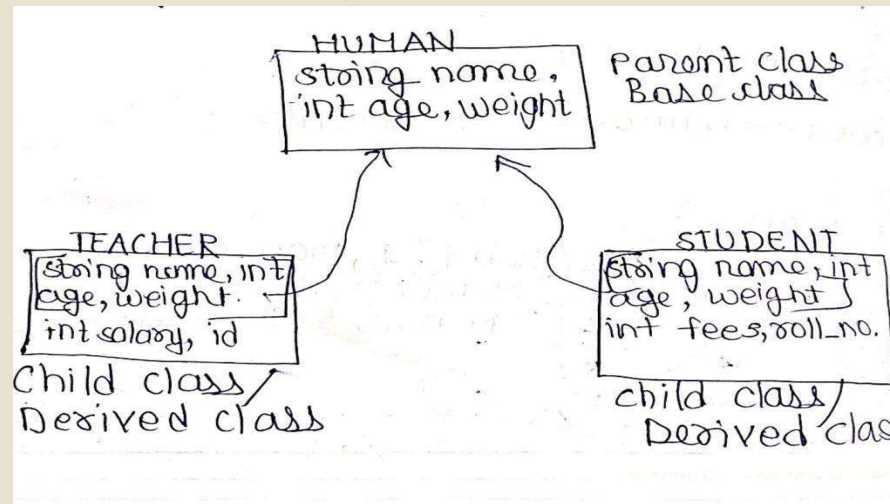 HUMAN
string name,
int age, weight
Parent class
Base class
TEACHER
string name, int
age, weight.
int salary, id
Child class /
Derived class
STUDENT
string name, int
age, weight
int fees, roll_no.
child class /
Derived clas